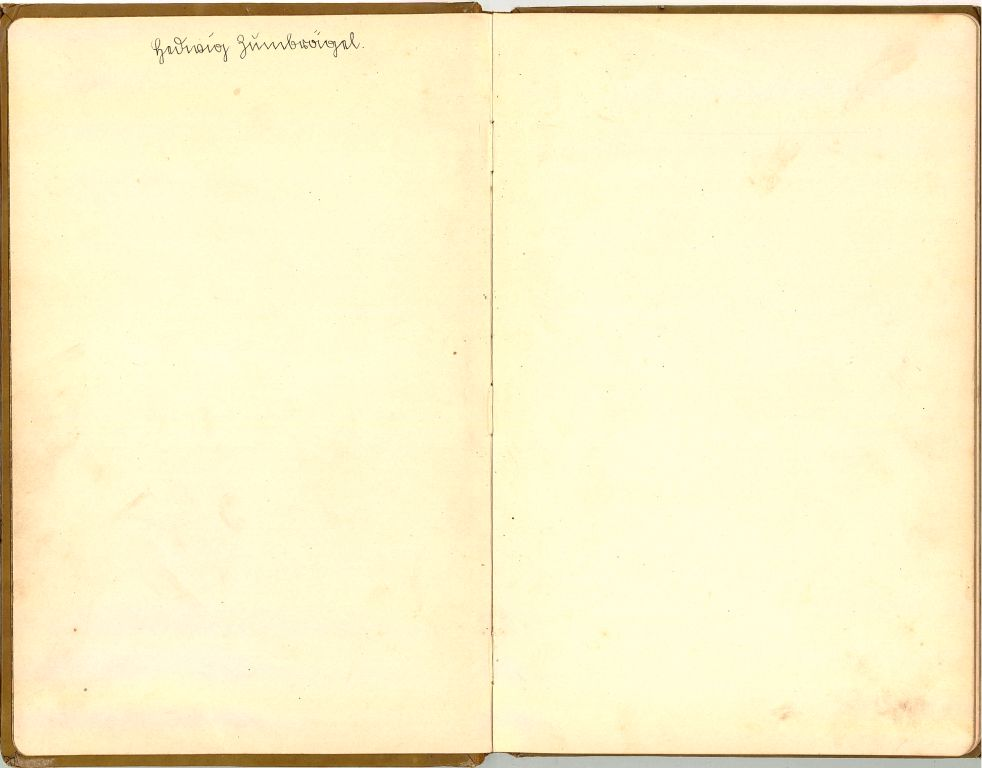 Hedwig Zumbrägel.